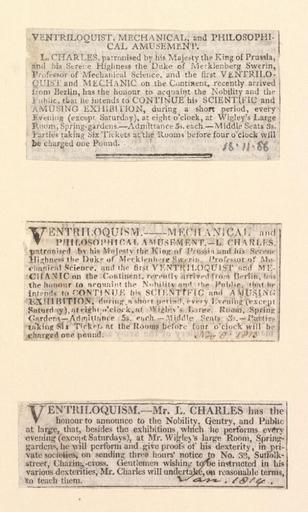 VENTRILOQUIST, MECHANICAL, and PHILOSOPHI-
CAL AMUSEMENT.
L. CHARLES, patronised by his Majesty the King of Prussia,
and his Serene Highness the Duke of Mecklenberg Swerin,
Professor of Mechanical Science, and the first VENTRILO-
QUIST and MECHANIC on the Continent, recently arrived
from Berlin, has the honour to acquaint the Nobility and the
Public, that he intends to CONTINUE his SCIENTIFIC and
AMUSING EXHIBITION, during a short period, every
Evening (except Saturday), at eight o'clock, at Wigley's Large
Room, Spring-gardens.—Admittance 5s. each.—Middle Seats 3s.
Parties taking Six Tickets at the Rooms before four o'clock will
be charged one Pound.
VENTRILOQUISM.——MECHANICAL and
PHILOSOPHICAL AMUSEMENT.—L. CHARLES,
patronised by his Majesty the King of Prussia and his Serene
Highness the Duke of Mecklenberg Swerin, Professor of Me-
chanical Science, and the first VENTRILOQUIST and ME-
CHANIC on the Continent, recently arrived from Berlin, has
the honour to acquaint the Nobility and the Public, that he
intends to CONTINUE his SCIENTIFIC and AMUSING
EXHIBITION, during a short period, every Evening (except
Saturday), at eight o'clock, at Wigley's Large Room, Spring
Gardens—Admittance 5s. each—Middle Seats 3s.—Parties
taking Six Tickets at the Rooms before four o'clock will be
charged one pound.
VENTRILOQUISM.—Mr. L. CHARLES has the
honour to announce to the Nobility, Gentry, and Public
at large, that, besides the exhibitions which he performs every
evening (except Saturdays), at Mr. Wigley's large Room, Spring-
gardens, he will perform and give proofs of his dexterity, in pri-
vate societies, on sending three hours' notice to No. 33, Suffolk-
street, Charing-cross. Gentlemen wishing to be instructed in his
various dexterities, Mr. Charles will undertake, on reasonable terms,
to teach them. Jan. 1814.